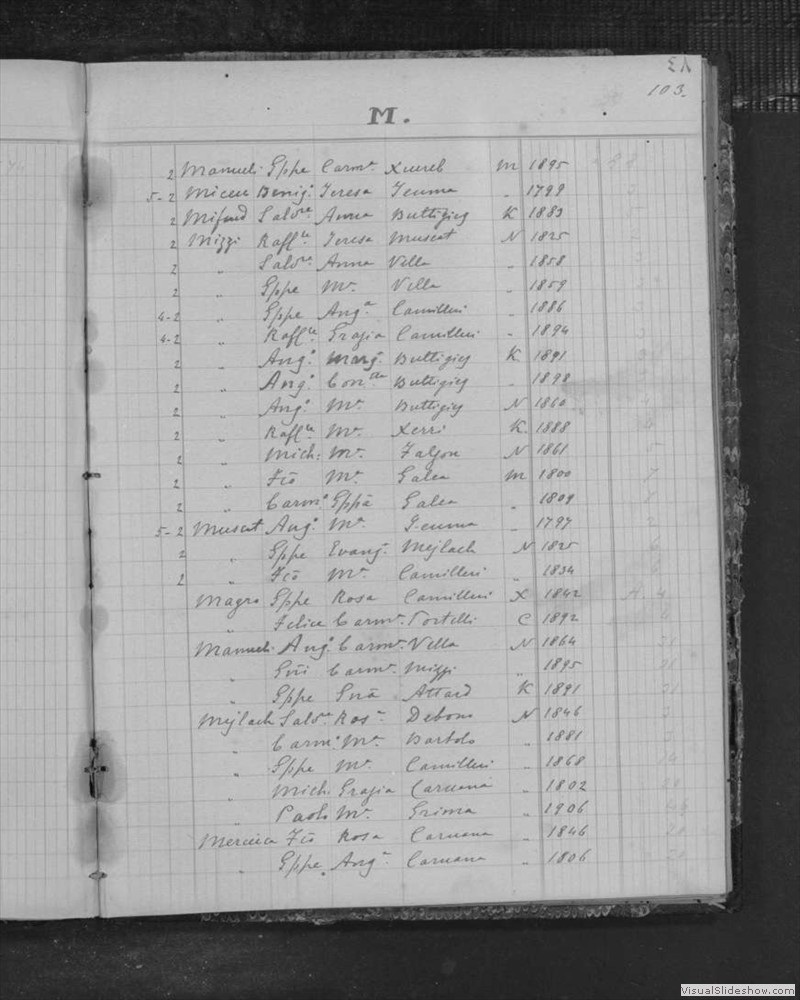 103.
M.
2 Manueli Gppe Carmᵃ Xuereb M 1895
5-2 Micceu Benigᵒ Teresa Teuma „ 1799
2 Mifsud Salvʳᵉ Anna Buttigieg K 1883
2 Mizzi Raffˡᵉ Teresa Muscat N 1825
2 „ Salvʳᵉ Anna Vella „ 1858
2 „ Gppe Mᵃ Vella „ 1859
4-2 „ Gppe Angᵃ Camilleri „ 1886
4-2 „ Raffˡᵉ Grazia Camilleri „ 1894
2 „ Angᵒ Margᵃ Buttigieg K 1891
2 „ Angᵒ Buttigieg „ 1898
2 „ Angᵒ Mᵃ Buttigieg N 1860
2 „ Raffˡᵉ Mᵃ Xerri K 1888
2 „ Mich: Mᵃ Falzon N 1861
2 „ Fcō Mᵃ Galea M 1800
2 „ Carmᵒ Gppā Galea „ 1809
5-2 Muscat Angᵒ Mᵃ Teuma „ 1797
2 „ Gppe Evangᵃ Mejlach N 1825
2 „ Fcō Mᵃ Camilleri „ 1834
Magro Gppe Rosa Camilleri X 1842
„ Felice Carmᵃ Portelli C 1892
Manueli Angᵒ Carmᵃ Vella N 1864
„ Carmᵃ Mizzi „ 1895
„ Gppe Attard K 1891
Mejlach Salvʳᵉ Rosᵃ Debono N 1846
„ Carmᵒ Mᵃ Bartolo „ 1881
„ Gppe Mᵃ Camilleri „ 1868
„ Mich. Grazia Caruana „ 1802
„ Paolo Mᵃ Grima „ 1906
Mercieca Fcō Rosa Caruana „ 1846
„ Gppe Angᵃ Caruana „ 1806
VisualSlideshow.com